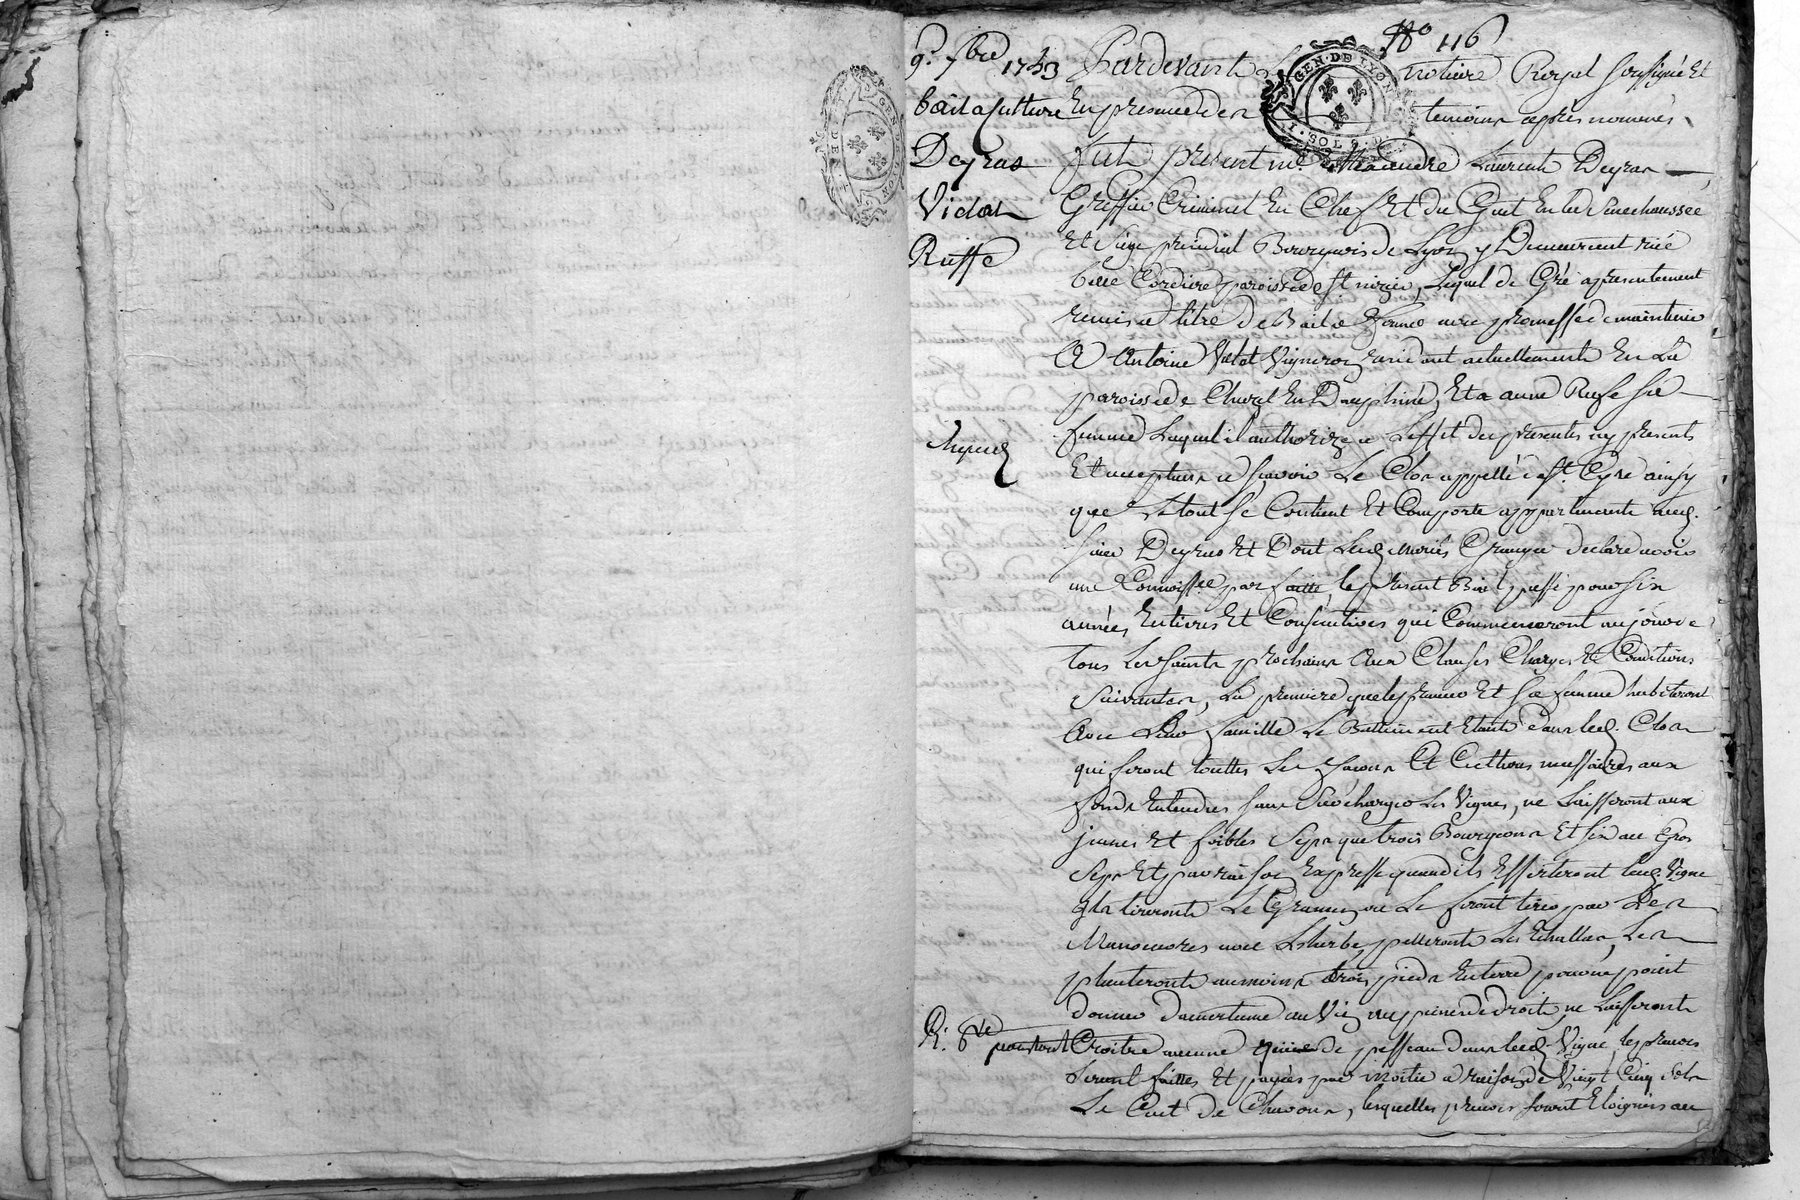 No 116
9e 7bre 1743
bail a culture
Deyras
Vidal
Ruffe
GEN. DE LYON
SOLS
Pardevant Le notaire Royal soussigné Et
En presence des temoins apres nommés
fut present me Laurent Deyras
Greffier Criminel En Chef Et du Guet En la Senechaussee
Et Siege presidial Bourgeois de Lyon y Demeurant rüe
belle Cordiere paroisse de st nizier, Lequel de Gré a presentement
remis a titre de Bail a ferme avec promesse de maintenir
A Antoine Vidal Vigneron residant actuellement En La
paroisse de En Dauphiné, Et a anne Ruffe sa
femme Laquelle il authorize a L'effet des presentes icy presents
Et acceptans a sçavoir Le Clos appellé de st. Cyre ainsy
que Le tout se Contient Et Comporte appartenant aud.
sieur Deyras Et Dont Lesd mariés Granger declare avoir
une Connoissce parfaitte, le present Bail passé pour six
années Entieres Et Consecutives qui Commenceront au jour de
tous Les saints prochains Aux Clauses Charges Et Conditions
suivantes, La premiere que les preneurs Et sa femme habiteront
Avec Leur famille Le Battiment Etant dans led. Clos
qui feront touttes Les façons Et Cultures necessaires aux
fonds Entendus sans Surcharger Les Vignes, ne Laisseront aux
jeunes Et foibles Seps que trois Bourgeons Et six au Gros
Seps Et par raison Expresse quand ils Essarteront lad. Vigne
ils tireront Le Gramen ou Le feront tirer par Des
Manoeuvres avec L'herbe, pelleront Les Echallas, Les
planteront au moins trois pieds En terre pour ne point
donner d'amertume au Vin au pieds de droit, ne Laisseront
Croitre aucune de pesseau dans lad. Vigne, les preuves
seront faittes Et payées par moitié a raison de Vingt Cinq sols
Le Cent de Chavons, lesquelles preuves seront Eloignées au